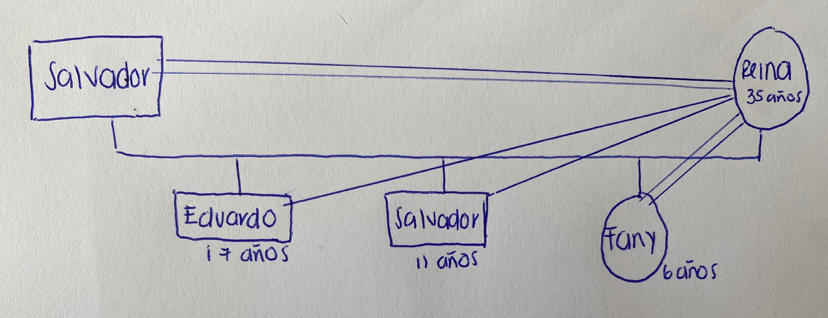 Salvador
Reina
35 años
Eduardo
17 años
Salvador
11 años
Fany
6 años